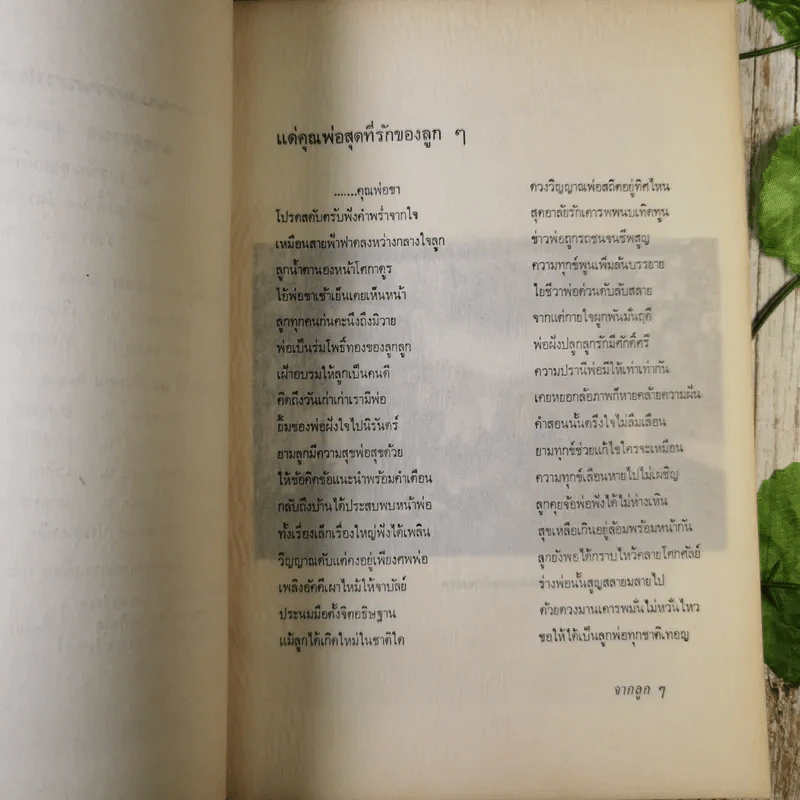 แด่คุณพ่อสุดที่รักของลูก ๆ
.......คุณพ่อขา ดวงวิญญาณพ่อสถิตอยู่ทิศไหน
โปรดสดับครับฟังคำพร่ำจากใจ สุดอาลัยรักเคารพพนบเทิดทูน
เหมือนสายฟ้าฟาดลงหว่างกลางใจลูก ข่าวพ่อถูกรถชนจนชีพสูญ
ลูกน้ำตานองหน้าโศกาดูร ความทุกข์พูนเพิ่มล้นบรรยาย
โอ้พ่อขาเช้าเย็นเคยเห็นหน้า ใยชีวาพ่อด่วนดับลับสลาย
ลูกทุกคนก่นคะนึงถึงมิวาย จากแต่กายใจผูกพันมั่นฤดี
พ่อเป็นร่มโพธิ์ทองของลูกลูก พ่อฝังปลูกลูกรักมีศักดิ์ศรี
เฝ้าอบรมให้ลูกเป็นคนดี ความปรานีพ่อมีให้เท่าเท่ากัน
คิดถึงวันเก่าเก่าเรามีพ่อ เคยหยอกล้อภาพก็หายคล้ายความฝัน
ยิ้มของพ่อฝังใจไปนิรันดร์ คำสอนนั้นตรึงใจไม่ลืมเลือน
ยามลูกมีความสุขพ่อสุขด้วย ยามทุกข์ช่วยแก้ไขใครจะเหมือน
ให้ข้อคิดข้อแนะนำพร้อมคำเตือน ความทุกข์เลือนหายไปไม่เผชิญ
กลับถึงบ้านได้ประสบพบหน้าพ่อ ลูกคุยจ้อพ่อฟังได้ไม่ห่างเหิน
ทั้งเรื่องเล็กเรื่องใหญ่ฟังได้เพลิน สุขเหลือเกินอยู่ล้อมพร้อมหน้ากัน
วิญญาณดับแต่คงอยู่เพียงศพพ่อ ลูกยังพอได้กราบไหว้คลายโศกศัลย์
เพลิงอัคคีเผาไหม้ให้จาบัลย์ ร่างพ่อนั้นสูญสลายมลายไป
ประนมมือตั้งจิตอธิษฐาน ด้วยดวงมานเคารพมั่นไม่หวั่นไหว
แม้ลูกได้เกิดใหม่ในชาติใด ขอให้ได้เป็นลูกพ่อทุกชาติเทอญ
จากลูก ๆ